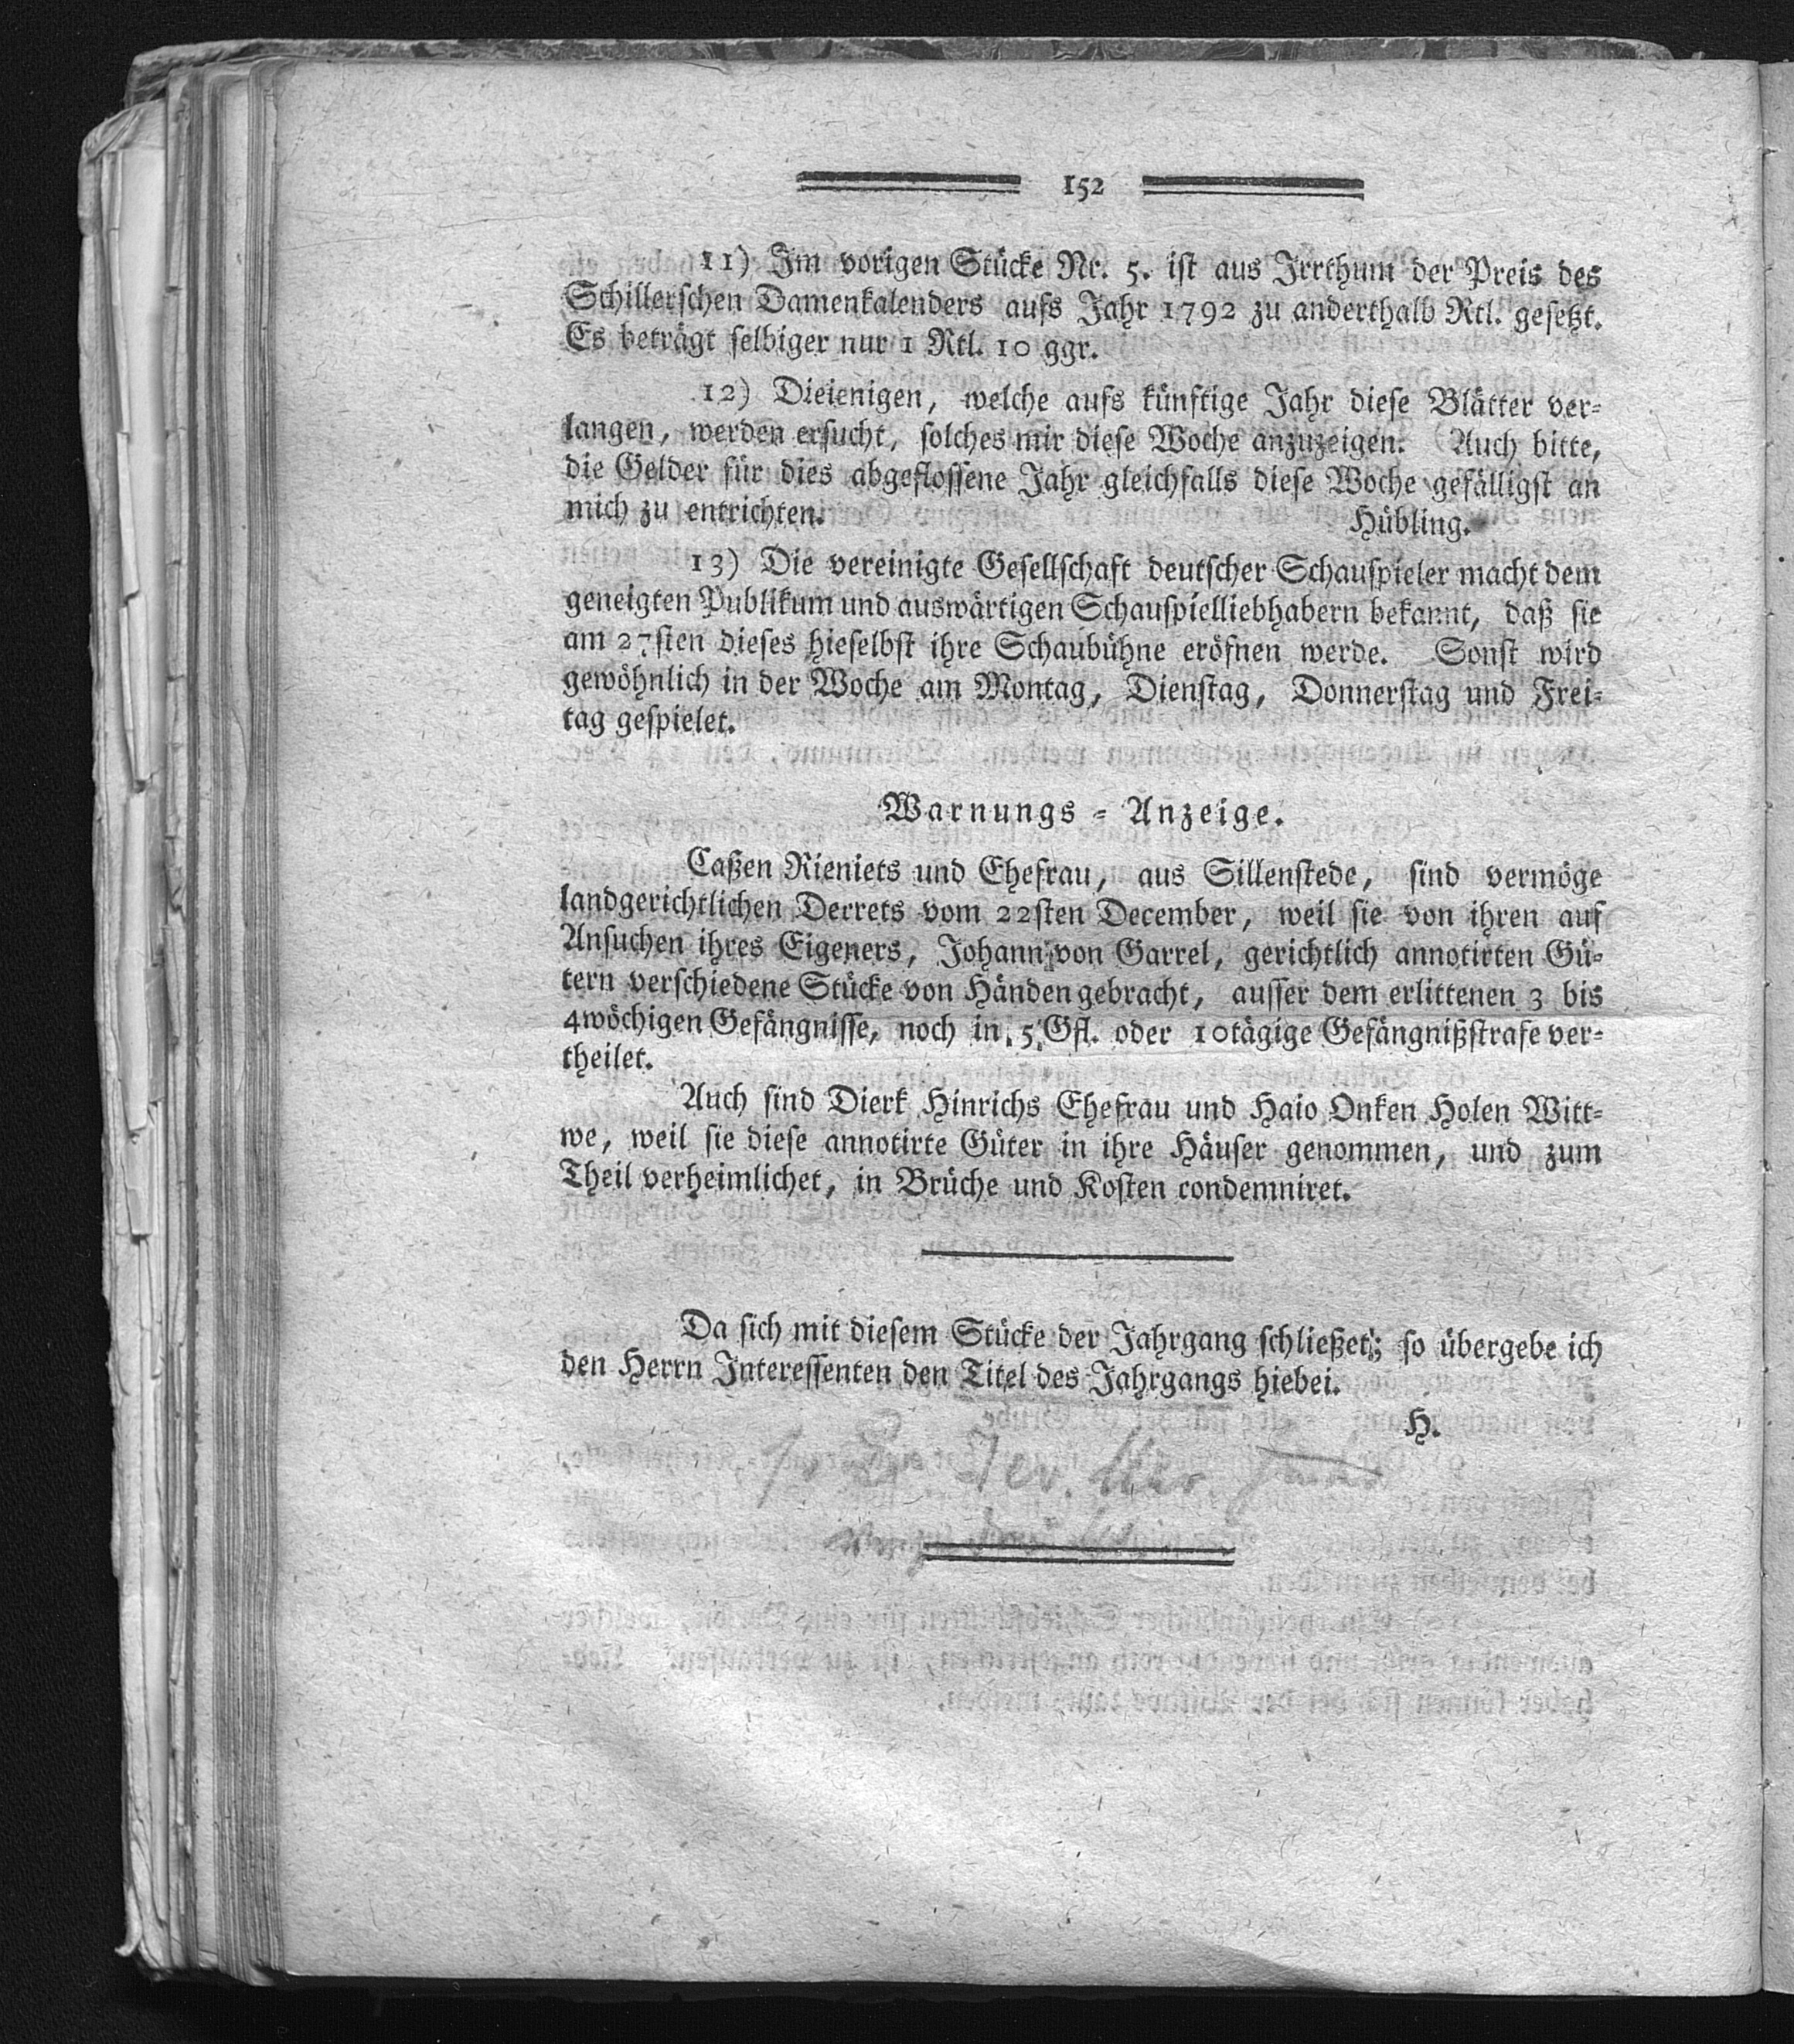 152
11) Im vorigen Stücke Nr. 5. ist aus Irrthum der Preis des
Schillerschen Damenkalenders aufs Jahr 1792 zu anderthalb Rtl. gesetzt.
Es beträgt selbiger nur 1 Rtl. 10 ggr.
12) Dieienigen, welche aufs künftige Jahr diese Blätter ver-
langen, werden ersucht, solches mir diese Woche anzuzeigen. Auch bitte,
die Gelder für dies abgeflossene Jahr gleichfalls diese Woche gefälligst an
mich zu entrichten. Hübling.
13) Die vereinigte Gesellschaft deutscher Schauspieler macht dem
geneigten Publikum und auswärtigen Schauspielliebhabern bekannt, daß sie
am 27sten dieses hieselbst ihre Schaubühne eröfnen werde. Sonst wird
gewöhnlich in der Woche am Montag, Dienstag, Donnerstag und Frei-
tag gespielet.
Warnungs-Anzeige.
Caßen Rieniets und Ehefrau, aus Sillenstede, sind vermöge
landgerichtlichen Derrets vom 22sten December, weil sie von ihren auf
Ansuchen ihres Eigeners, Johann von Garrel, gerichtlich annotirten Gü-
tern verschiedene Stücke von Händen gebracht, ausser dem erlittenen 3 bis
4wöchigen Gefängnisse, noch in 5 Gfl. oder 10tägige Gefängnißstrafe ver-
theilet.
Auch sind Dierk Hinrichs Ehefrau und Haio Onken Holen Witt-
we, weil sie diese annotirte Güter in ihre Häuser genommen, und zum
Theil verheimlichet, in Brüche und Kosten condemniret.
Da sich mit diesem Stücke der Jahrgang schließet; so übergebe ich
den Herrn Interessenten den Titel des Jahrgangs hiebei.
H.